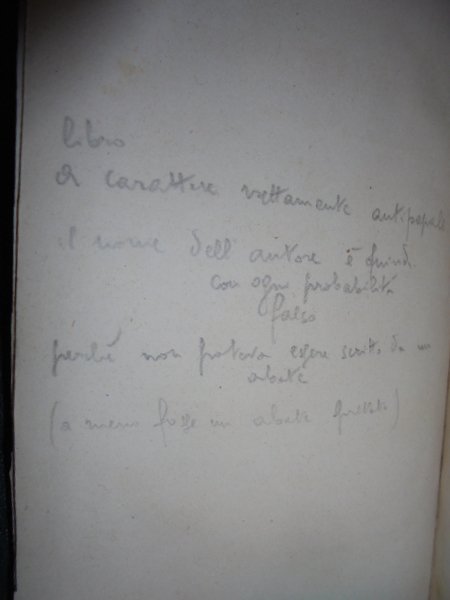 libro
a carattere nettamente antipapale
il nome dell autore è quindi
con ogni probabilità
falso
perché non poteva essere scritto da un
abate
(a meno fosse un abate